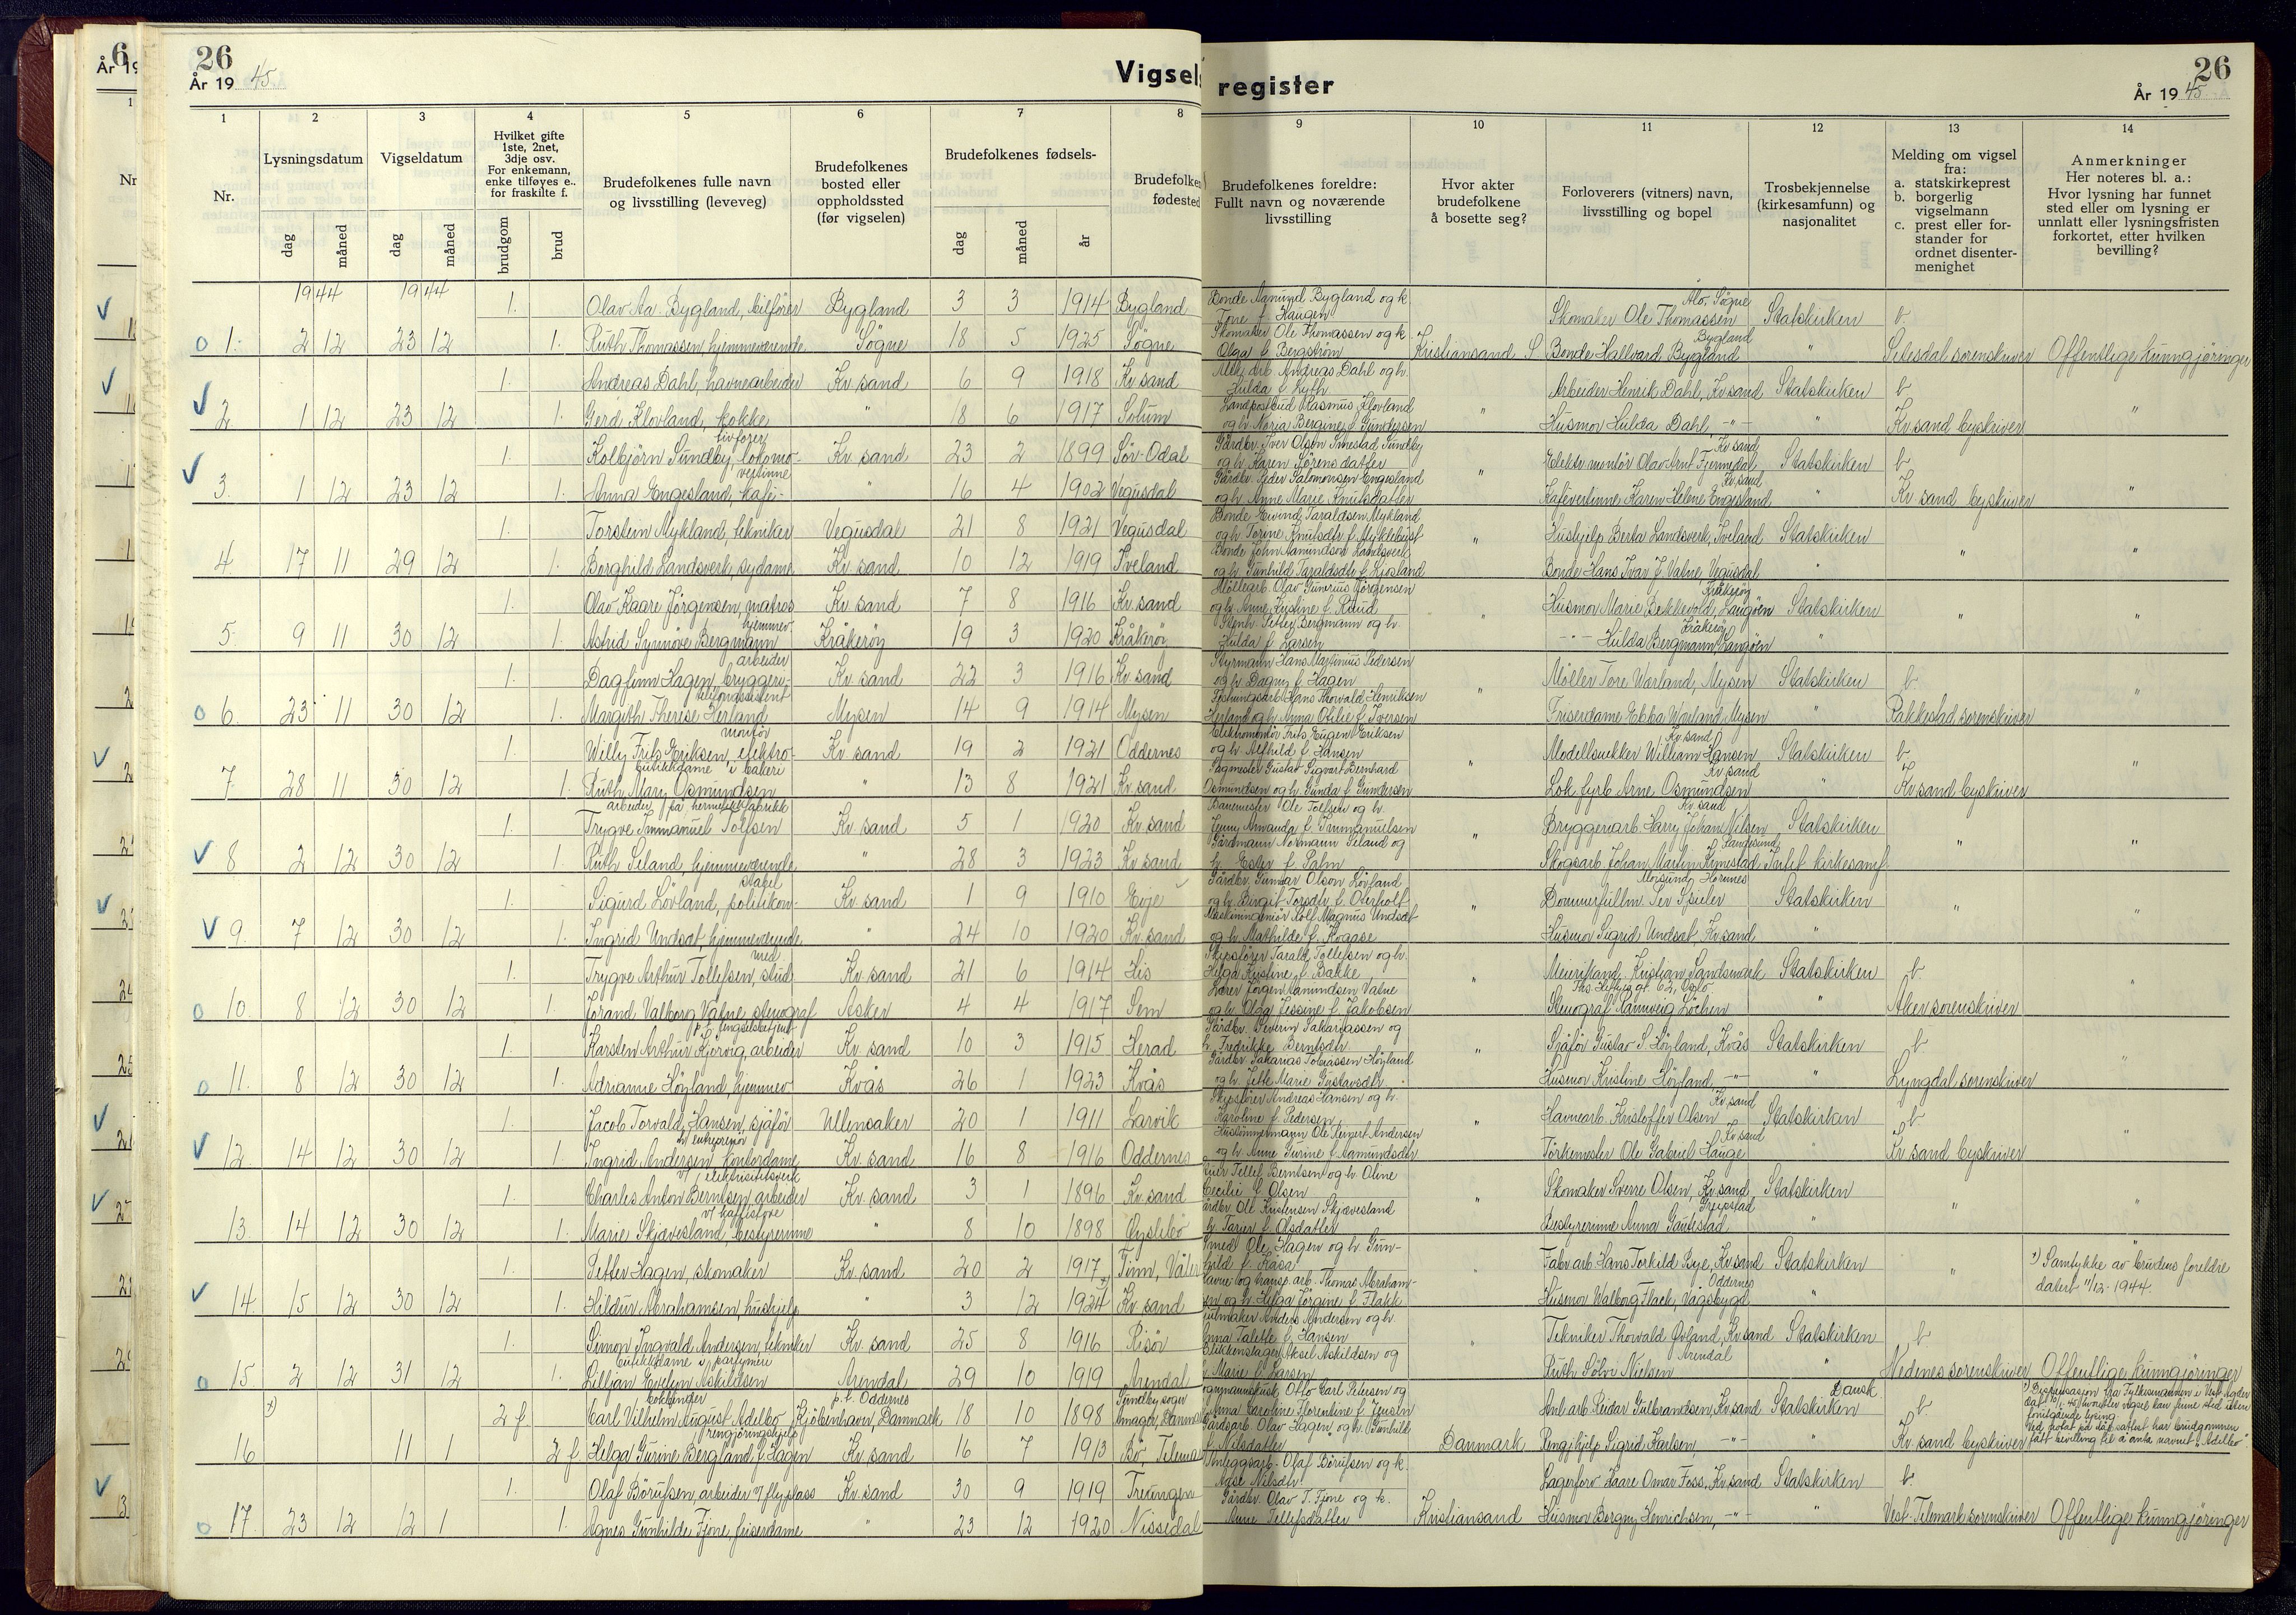 26
År 1945
Vigsels
register
26
År 1945
1
2
3
4
5
6
7
8
9
10
11
12
13
14
Nr.
Lysningsdatum
Vigseldatum
Hvilket gifte
1ste, 2net,
3dje osv.
For enkemann,
enke tilføyes e..
for fraskilte f.
Brudefolkenes fulle navn
og livsstilling (leveveg)
Brudefolkenes
bosted eller
oppholdssted
(før vigselen)
Brudefolkenes fødsels-
Brudefolkenes foreldre:
Fullt navn og noværende
livsstilling
Hvor akter
brudefolkene
å bosette seg?
Forloverers (vitners) navn,
livsstilling og bopel
Trosbekjennelse
(kirkesamfunn) og
nasjonalitet
Melding om vigsel
fra:
a. statskirkeprest
b. borgerlig
vigselmann
c. prest eller for-
stander for
ordnet disenter-
menighet
Anmerkninger
Her noteres bl. a.:
Hvor lysning har funnet
sted eller om lysning er
unnlatt eller lysningsfristen
forkortet, etter hvilken
bevilling?
dag
måned
dag
måned
brudgom
brud
dag
måned
år
1944 1944
1. Olav Aa. Bygland, bilfører Bygland 3 3 1914 Bygland Bonde Aamund Bygland og k. Tone f. Haugen Skomaker Ole Thomassen Alo, Søgne Statskirken b.
1. 2 12 23 12 1. Ruth Thomassen, hjemmeværende Søgne 18 5 1925 Søgne Skomaker Ole Thomassen og k. Olga f. Bergström Kristiansand S Bonde Hallvard Bygland Bygland " Setesdal sorenskriver Offentlige kunngjøringer
1. Andreas Dahl, havnearbeider Kr.sand 6 9 1918 Kr.sand Andreas Dahl og h. Hulda f. Arbeider Henrik Dahl, Kr.sand Statskirken b
2 1 12 23 12 1. Gerd Klovland, kokke " 18 6 1917 Solum Landpostbud Rasmus Klovland og h. Maria Bergine f. Gundersen " Husmor Hulda Dahl -"- Kr.sand byskriver "
1. Kolbjörn Sundby, lokomotivfører Kr.sand 23 2 1899 Sör-Odal Gårdbr. Iver Olsen Sundby og h. Karen Sörensdatter Elektr.montör Olav Arnt Fjermedal, Kr.sand Statskirken b
3. 1 12 23 12 1. Anna Engesland, kafévertinne " 16 4 1902 Vegusdal Gårdbr. Peder Salomonsen Engesland og h. Anne Marie Knutsdatter " Kafévertinne Karen Helene Engesland Kr.sand " Kr.sand byskriver "
1. Torstein Mykland, tekniker Vegusdal 21 8 1921 Vegusdal Bonde Eivind Taraldsen Mykland og h. Torine Knutsdtr f. Myklebust Hushjelp Berta Landsverk, Iveland Statskirken
4. 17 11 29 12 1. Borghild Landsverk, sydame Kr.sand 10 12 1919 Iveland Bonde John Aamundsen Landsverk og h. Gunhild Taraldsdtr f. Kjosland " Bonde Hans Ivar J. Vatne, Vegusdal " " "
1. Olav Kaare Jörgensen, matros Kr.sand 7 8 1916 Kr.sand Olav Gunerius Jörgensen og h. Anne Kristine f. Husmor Marie Bekkevold, Langöen Kråkeröy Statskirken
5. 9 11 30 12 1. Astrid Synnöve Bergmann hjemmev. Kråkeröy 19 3 1920 Kråkeröy Petter Bergmann og h. Hulda f. Larsen " -"- Hulda Bergmann Langöen Kråkeröy " " "
1. Dagfinn Hagen, bryggeriarbeider Kr.sand 22 3 1916 Kr.sand Styrmann Hans Martinius Pedersen og h. Dagny f. Hagen Möller Tore Wærland, Mysen Statskirken b
6. 23 11 30 12 1. Margith Therese Herland Mysen 14 9 1914 Mysen Hans Thorvald Henriksen Herland og h. Anna Otilie f. Iversen " Friserdame Ebba Wærland, Mysen " Rakkestad sorenskriver "
1. Willy Frits Eriksen, elektromontör Kr.sand 19 2 1921 Oddernes Elektromontör Frits Eugen Eriksen og h. Alfhild f. Hansen Modellsnekker William Hansen Kr.sand Statskirken b
7. 28 11 30 12 1. Ruth Mary Osmundsen butikkdame i bakeri " 13 8 1921 Kr.sand Sagmester Gustav Sigvart Bernhard Osmundsen og h. Gunda f. Gundersen " Lok.fyrb. Arne Osmundsen Kr.sand " Kr.sand byskriver "
1. Trygve Immanuel Tolfsen arbeider på hermetikkfabrikk Kr.sand 5 1 1920 Kr.sand Banemester Ole Tolfsen og h. Jenny Amanda f. Immanuelsen Bryggeriarb. Harry Johan Nilsen Kr.sand Statskirken
8 2 12 30 12 1. Ruth Seland, hjemmeværende " 28 3 1923 Kr.sand Normann Seland og h. Ester f. Palm " Skogsarb. Johan Martin Kimestad Langesund " "
1. Sigurd Lövland, politikonstabel Kr.sand 1 9 1910 Evje Gårdbr. Gunnar Olson Lövland og h. Birgit Torsdtr f. Oterholt Bommerfullm. Per Spieler Mosjund, Hornnes Statskirken
9. 7 12 30 12 1. Ingrid Undsat, hjemmeværende " 24 10 1920 Kr.sand Maskiningeniör Rolf Magnus Undsat og h. Mathilde f. Kvaase " Husmor Sigrid Undsat, Kr.sand " " "
1. Trygve Arthur Tollefsen, stud.med. Kr.sand 21 6 1914 His Skipsförer Taralt Tollefsen og h. Helga Kristine f. Bakke Meierikand. Kristian Sandsmark Statskirken b
10. 8 12 30 12 1. Jörand Valborg Vatne, stenograf Asker 4 4 1917 Sem Lærer Jörgen Aamundsen Vatne og h. Olga Jessine f. Jakobsen " Stenograf Rannveig Löchen Ths. Heftyes gt. 62, Oslo Aker sorenskriver "
1. Karsten Arthur Kjervig, arbeider p.t. fengselsbetjent Kr.sand 10 3 1915 Herad Gårdbr. Severin Sakariassen og h. Fredrikke Berntsdtr. Sjåför Gustav S. Höyland, Kvås Statskirken b
11. 8 12 30 12 1. Adrianne Höyland, hjemmev. Kvås 26 1 1923 Kvås Gårdbr. Sakarias Tobiassen Höyland og h. Jette Marie Gustavsdtr. " Husmor Kristine Höyland -"- " Lyngdal sorenskriver "
1. Jacob Torvald Hansen, sjåför Ullensaker 20 1 1911 Larvik Skipsförer Andreas Hansen og h. Karoline f. Pedersen Havnearb. Kristoffer Olsen Kr.sand Statskirken b
12. 14 12 30 12 1. Ingrid Andersen kontordame h/ entreprenör Kr.sand 16 8 1916 Oddernes Hustömmermann Ole Andersen og h. Anne Gurine f. Aamundsdtr " Törkemester Ole Gabriel Hauge Kr.sand " Kr.sand byskriver "
1. Charles Anton Berntsen, arbeider v/ elektrisitetsverk Kr.sand 3 1 1896 Kr.sand Tellef Berntsen og h. Oline Cecilie f. Olsen Skomaker Sverre Olsen, Kr.sand Statskirken
13. 14 12 30 12 1. Marie Skjævesland, bestyrerinne v/ kaffistove " 8 10 1898 Öyslebö Ole Kristensen Skjævesland h. Tarjer f. Olsdatter " Bestyrerinne Anna Gautestad Greipstad " " "
1. Petter Hagen, skomaker Kr.sand 20 2 1917 Tinn, Våler Smed Ole Hagen og h. Gunhild f. Kåsa Fabr.arb. Hans Torkild Bye, Kr.sand Statskirken x) Samtykke av brudens foreldre
14. 15 12 30 12 1. Hildur Abrahamsen, hushjelp " 3 12 1924 x) Kr.sand Havne og transp.arb. Thomas Abrahamsen og h. Helga Jörgine f. Flakk Husmor Walborg Flack, Vågsbygd Oddernes " " datert 11/12-1944.
1. Simon Ingvald Andersen, tekniker Kr.sand 25 8 1916 Risör Anders Andersen og h. Anna Talette f. Hansen " Tekniker Thorvald Övland, Kr.sand Statskirken b
15 2 12 31 12 1. Lilljan Evelyn Askildsen butikkdame i parfymeri Arendal 29 10 1919 Arendal Blikkenslager Aksel Askildsen og h. Marie f. Larsen Ruth Sölvi Nielsen Arendal " Nedenes sorenskriver Offentlige kunngjøringer
x) 2 f. Carl Vilhelm August Adelbo p.t. Oddernes Kjöbenhavn, Danmark 18 10 1898 Sundby sogn Amager, Danmark Otto Carl Petersen og Anna Caroline Florentine f. Jensen Anl.arb. Reidar Gulbrandsen, Kr.sand Dansk Statskirken b. x) Dispensasjon fra Fylkesmannen i Vest-Agder
16 11 1 2 f. Helga Gurine Bergland f. Hagen rengjöringshjelp Kr.sand 16 7 1913 Bö, Telemark Gårdsarb. Olav Hagen og h. Gunhild Nilsdatter Danmark Rengj.hjelp Sigrid Karlsen, -"- " Kr.sand byskriver fått bevilling til å anta navnet "Adelbo"
1. Olaf Börufsen, arbeider v/ flyplass Kr.sand 30 9 1919 Treungen Anleggsarb. Olaf Börufsen og k. Aase Nilsdtr. Lagerforv. Kaare Omar Foss, Kr.sand Statskirken b.
17. 23 12 12 1 1. Agnes Gunhilde Fjone, friserdame " 23 12 1920 Nissedal Gårdbr. Olav T. Fjone og k. Anne Tellefsdatter Kristiansand Husmor Borgny Henrichsen, -"- " Vest-Telemark sorenskriver Offentlige kunngjøringer